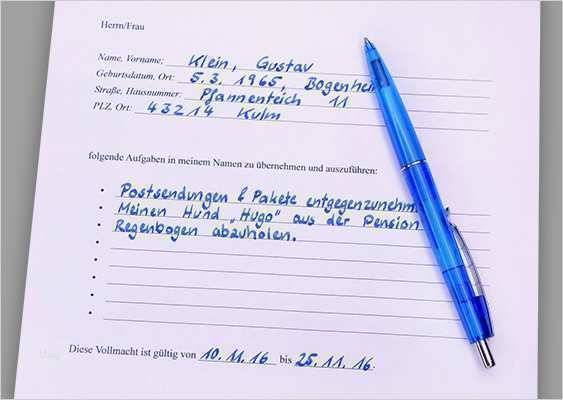 Herrn/Frau
Name, Vorname: Klein, Gustav
Geburtsdatum, Ort: 5.3.1965, Bogenhei
Straße, Hausnummer: Pfannenteich 11
PLZ, Ort: 43214 Kulm
folgende Aufgaben in meinem Namen zu übernehmen und auszuführen:
• Postsendungen & Pakete entgegenzunehm
• Meinen Hund „Hugo" aus der Pension
• Regenbogen abzuholen.
•
•
•
•
Diese Vollmacht ist gültig von 10.11.16 bis 25.11.16.